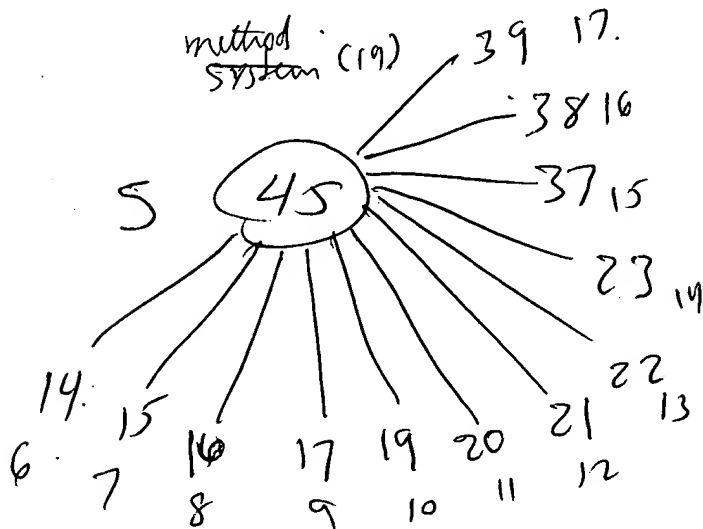 method
system (19)
39 17.
38 16
37 15
5 45
23 14
22
13
14. 15 16 17 19 20 21
6 7 8 9 10 11 12